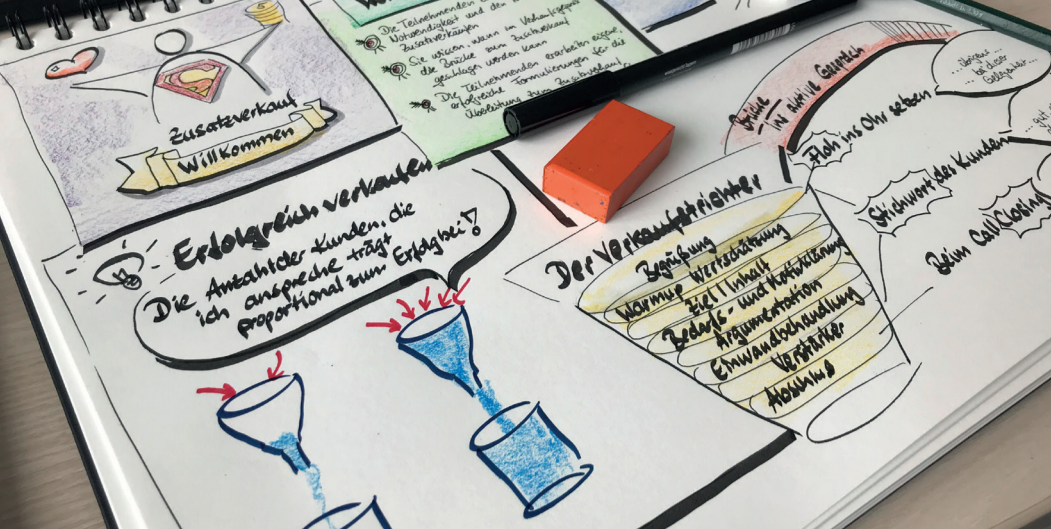 Zusatzverkauf
Willkommen
Die Teilnehmenden
Notwendigkeit und den
Zusatzverkaufen
Sie wissen, wann im Verkaufsgespräch
die Brücke zum Zusatzverkauf
geschlagen werden kann
Die Teilnehmenden erarbeiten eigene,
erfolgreiche Formulierungen für die
Überleitung zum Zusatzverkauf
Erfolgreich verkaufen
Die Anzahl der Kunden, die
ich anspreche trägt
proportional zum Erfolg bei!
Der Verkaufstrichter
Begrüßung
Warmup Wertschätzung
Ziel / Inhalt
Bedarfs- und Motivklärung
Argumentation
Einwandbehandlung
Verstärker
Abschluss
Brücke
ins aktive Gespräch
... übrigens ...
... bei dieser
Gelegenheit ...
Floh ins Ohr setzen
Stichwort des Kunden
Beim Call Closing